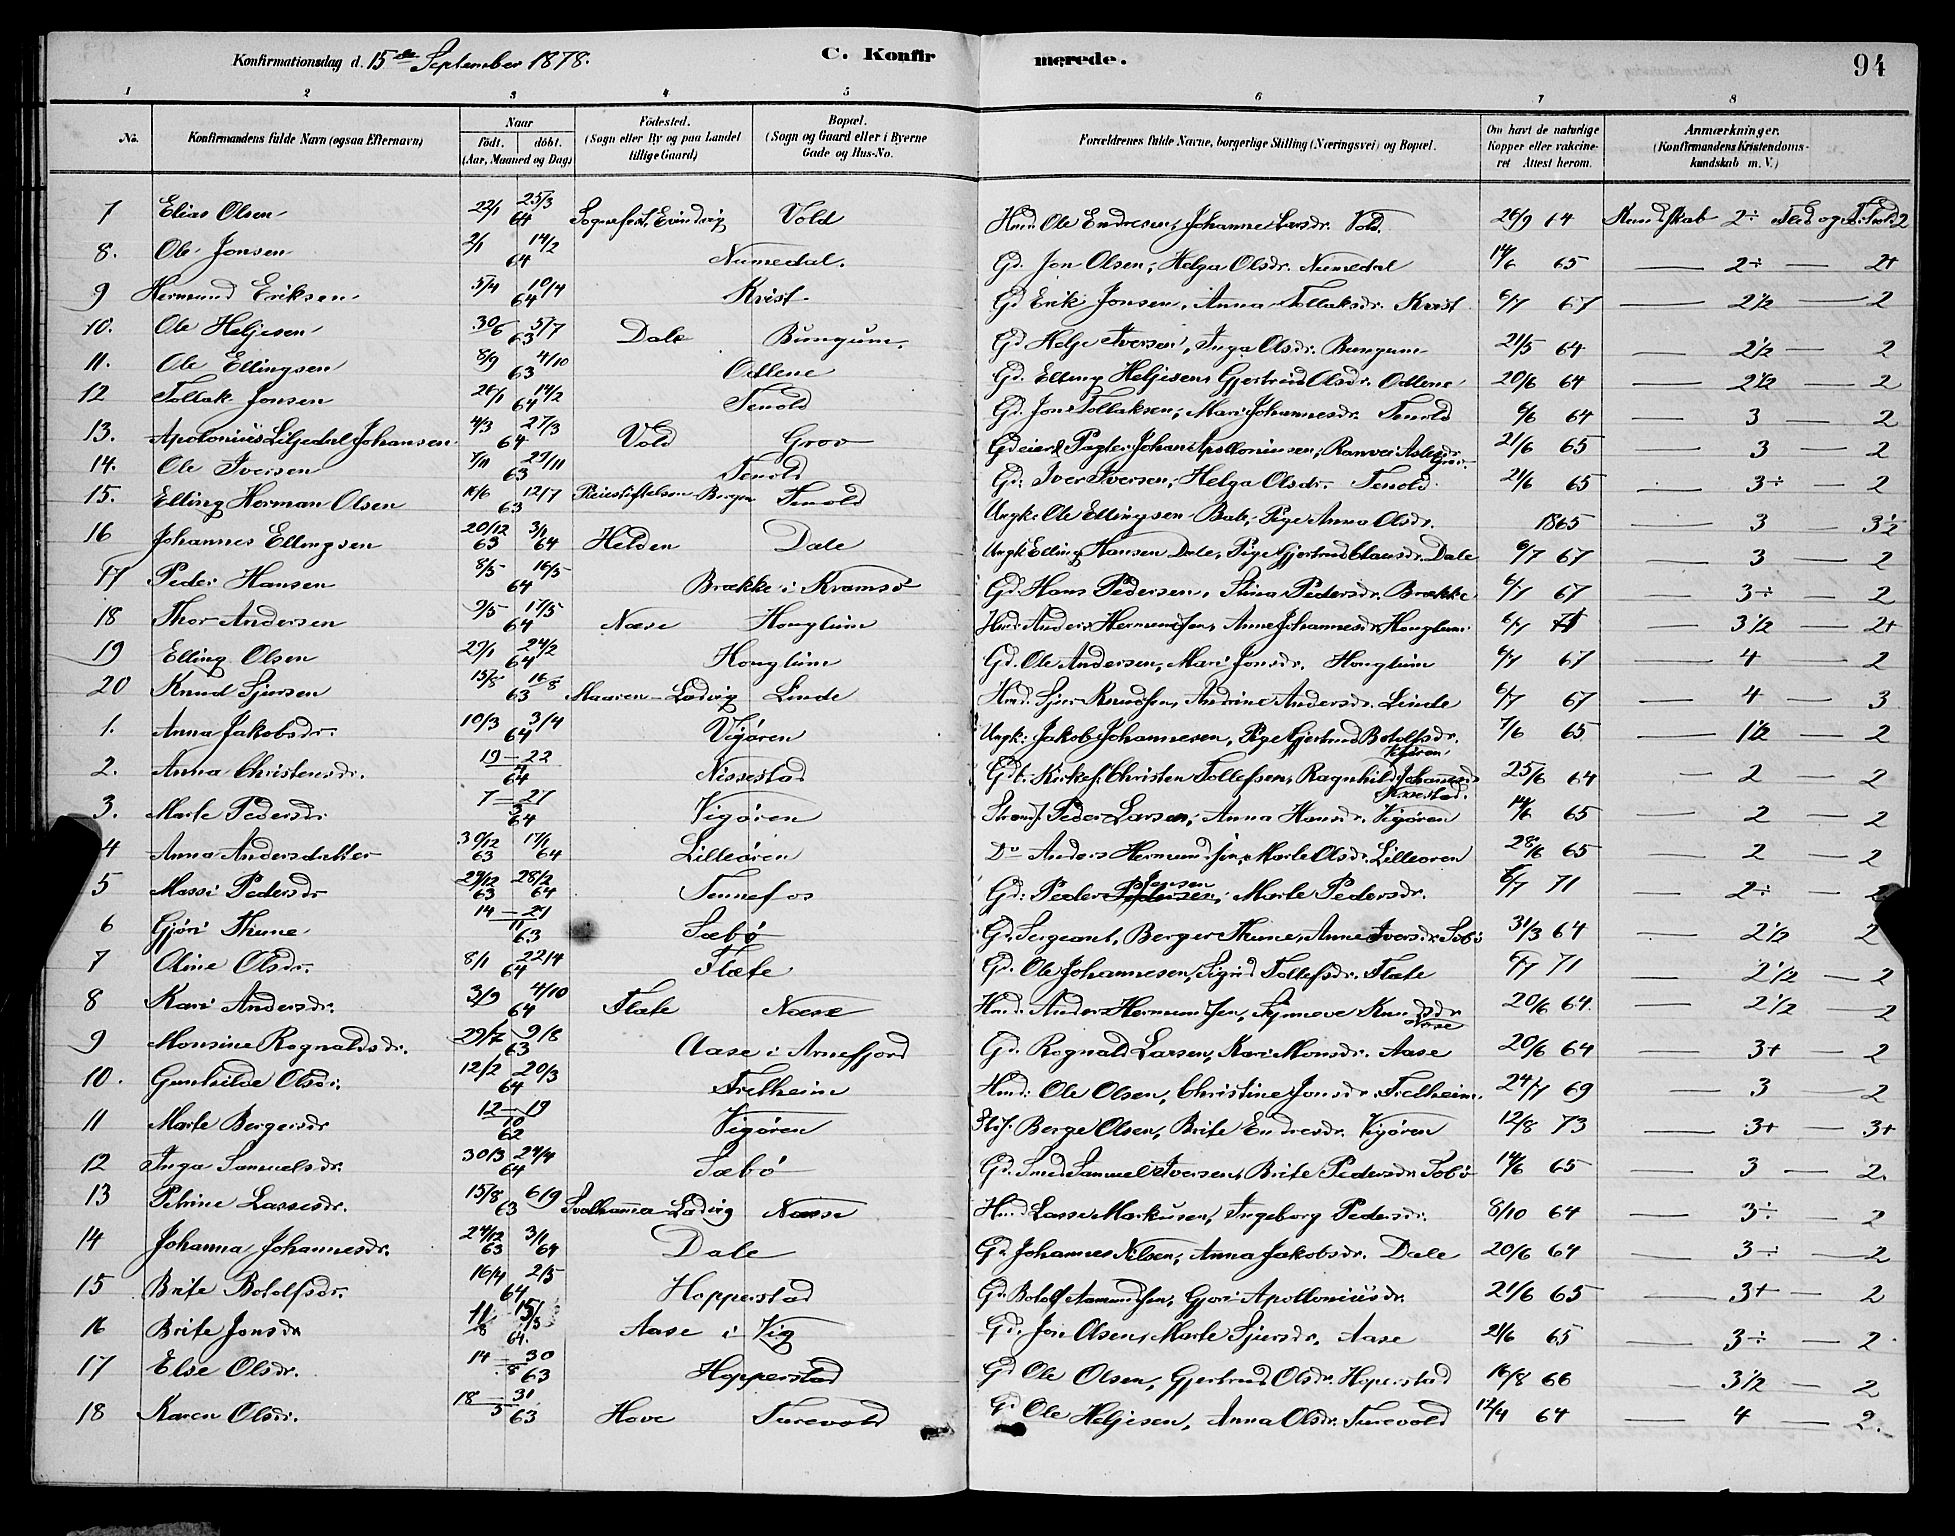 Konfirmationsdag d. 15de September 1878. C. Konfirmerede. 94
1 2 3 4 5 6 7 8
No. Konfirmandens fulde Navn (ogsaa Efternavn) Naar födt. döbt. (Aar, Maaned og Dag) Födested. (Sogn eller By og paa Landet tillige Gaard) Bopæl. (Sogn og Gaard eller i Byerne Gade og Hus-No. Forældrenes fulde Navne, borgerlige Stilling (Næringsvei) og Bopæl. Om havt de naturlige Kopper eller vakcineret Attest herom. Anmærkninger. (Konfirmandens Kristendomskundskab m. V.)
7 Elias Olsen 22/1 25/3 64 Sognefest. Evindvig Vold Hmd. Ole Endresen, Johanne Larsdr. Vold 26/9 64 Kundskab 2÷ Flid og 2
8. Ole Jonsen 2/1 14/2 64 Numedal. Gd. Jon Olsen, Helga Olsdr. Numedal 14/6 65 — 2÷ — 2+
9 Hermund Eriksen 5/4 10/4 64 Kvist Gd Erik Jonsen, Anna Tollaksdr. Kvist 6/7 67 — 2 1/2 — 2
10. Ole Heljesen 30/6 5/7 63 Dale Bungum. Gd Helje Iversen, Inga Olsdr. Bungum 21/5 64 — 2 1/2 — 2
11. Ole Ellingsen 8/9 4/10 63 Odlene Gd. Elling Heljesen, Gjertrud Olsdr. Odlene 20/6 64 — 2 1/2 — 2
12 Tollak Jonsen 26/1 14/2 64 Tenold Gd. Jon Tollaksen, Mari Johannesdr. Tenold 6/6 64 — 3 — 2
13. Apolonius Liljedal Johansen 4/3 27/3 64 Vold Grov Gdeier & Pagter Johan Apolloniussen, Ranvei Aslesdr. Grov 21/6 65 — 3 — 2
14. Ole Iversen 7/11 29/11 63 Tenold Gd. Iver Iversen, Helga Olsdr. Tenold 21/6 65 — 3÷ — 2
15. Elling Herman Olsen 16/6 12/7 63 Pleiestiftelsen Bergen Tenold Ungk. Ole Ellingsen Bale, Pige Anna Olsdr. 1865 — 3 — 3 1/2
16 Johannes Ellingsen 20/12 63 3/1 64 Helden Dale Ungk. Elling Hansen Dale, Pige Gjertrud Clausdr. Dale 6/7 67 — 3 — 2
17 Peder Hansen 8/5 16/5 64 Brække i Kvamsö Gd. Hans Pedersen, Stina Pedersdr. Brække 6/7 67 — 3÷ — 2
18 Thor Andersen 9/5 17/5 64 Næse Honglum Hmd. Anders Hermundsen, Anne Johannesdr. Honglum 6/7 71 — 3 1/2 — 2+
19 Elling Olsen 29/1 24/2 64 Honglum Gd. Ole Andersen, Mari Jonsdr. Honglum 6/7 67 — 4 — 2
20 Knud Sjursen 15/8 16/8 63 Maaren - Ladvig Linde Hmd. Sjur Knudsen, Andrine Andersdr. Linde 6/7 67 — 4 — 3
1. Anna Jakobsdr. 10/3 3/4 64 Vigøren Ungk. Jakob Johannesen, Pige Gjertrud Botolfsdr. Vigøren 7/6 65 — 1 1/2 — 2
2. Anna Christensdr. 19 — 22 64 Nissestad Gdb. Kirkes. Christen Tollefsen, Ragnhild Johannesdr. Nissestad. 25/6 64 — 2 — 2
3. Marte Pedersdr 7 — 27 3 64 Vigøren Strands. Peder Larsen, Anna Hansdr. Vigøren 14/6 65 — 2 — 2
4 Anna Andersdatter 30/12 63 17/1 64 Lilleøren Do Anders Hermundsen, Marte Olsdr. Lilleøren 28/6 65 — 2 — 2
5 Massi Pedersdr 29/12 63 28/2 64 Tennefos Gd. Peder Pedersen Jensen, Marte Pedersdr. 6/7 71 — 2÷ — 2
6 Gjøri Thune 14 — 21 11 63 Sæbø Gd. Sergeant, Berger Thune, Anne Iversdr. Sæbø 31/3 64 — 2 1/2 — 2
7 Oline Olsdr. 8/1 22/4 64 Flæte Gd. Ole Johannesen, Sigrid Tollefsdr. Flæte 6/7 71 — 2 1/2 — 2
8 Kari Andersdr. 3/9 4/10 64 Flæte Næse Hmd. Anders Hermundsen, Synneve Knudsdr Næse 20/6 64. — 2 1/2 — 2
9 Monsine Rognaldsdr. 29/7 9/8 63 Aase i Arnefjord Gd. Rognald Larsen, Kari Monsdr. Aase 20/6 64 — 3+ — 2
10. Gunhilde Olsdr. 12/2 20/3 64 Fretheim Hmd. Ole Olsen, Christine Jonsdr. Fretheim. 24/7 69 — 3 — 2
11 Marte Bergersdr 12 — 19 10 62 Vigøren Berge Olsen, Brite Endresdr. Vigøren 12/8 73 — 3+ — 3+
12 Inga Samuelsdr. 30/3 24/4 64 Sæbø Gd. Smed Samuel Iversen, Brite Pedersdr. Sæbø 14/6 65 — 3 — 2.
13 Petrine Lassesdr. 15/8 6/9 63 Svalhama - Ladvig Næse Hmd Lasse Markusen, Ingeborg Pedersdr. 8/10 64 — 3÷ — 2
14 Johanna Johannesdr. 24/12 63 3/1 64 Dale Gd Johannes Nilsen, Anna Jakobsdr. Dale 20/6 64 — 3÷ — 2
15 Brite Botolfsdr. 16/4 2/5 64 Hopperstad Gd. Botolf Aamundsen, Gjøri Apolloniusdr. 21/6 65 — 3+ — 2
16 Brite Jonsdr 11/8 15/3 64. Aase i Vig Gd. Jon Olsen, Marte Sjursdr. Aase 21/6 65 — 3÷ — 2.
17 Else Olsdr. 14 — 30 8 63 Hopperstad Gd Ole Olsen, Gjertrud Olsdr. Hoperstad 16/8 66 — 3 1/2 — 2
18 Karen Olsdr. 18 — 31 3 63 Hove Turevold Gd Ole Heljesen, Anna Olsdr. Turevold 12/4 64 — 4 — 2.